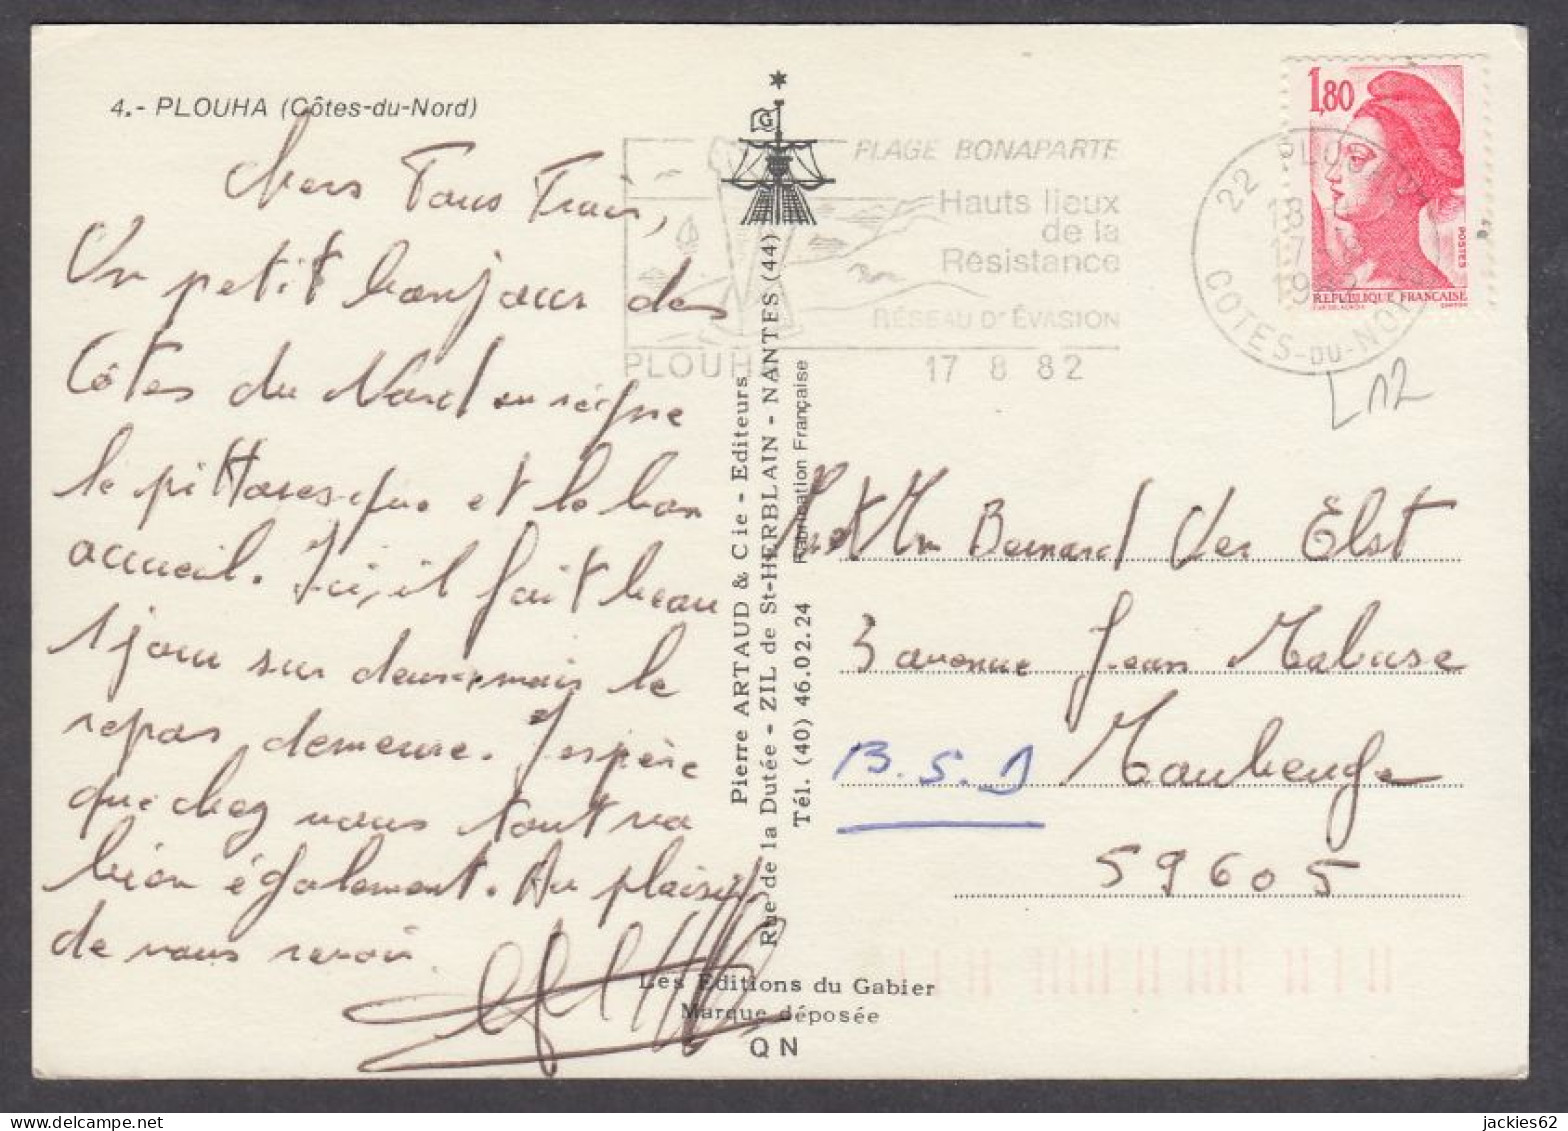 4.- PLOUHA (Côtes-du-Nord)
Chers Tous Trois,
Un petit bonjour des
Côtes du Nord où règne
le pittoresque et le bon
accueil. Ici, il fait beau
1 jour sur deux, mais le
repas demeure. J'espère
que chez vous tout va
bien également. Au plaisir
de vous revoir
Pierre ARTAUD & Cie - Editeurs
Rue de la Dutée - ZIL de St-HERBLAIN - NANTES (44)
Tél. (40) 46.02.24 Fabrication Française
Les Editions du Gabier
Marque déposée
QN
G
PLAGE BONAPARTE
Hauts lieux
de la
Résistance
RÉSEAU D'ÉVASION
PLOUHA 17 8 82
22 PLOUHA
18
17
COTES-DU-NORD
1,80
POSTES
REPUBLIQUE FRANÇAISE
L12
M et Mm Bernard Ver Elst
3 avenue Jean Mabuse
B.S.J Maubeuge
59605
jackies62